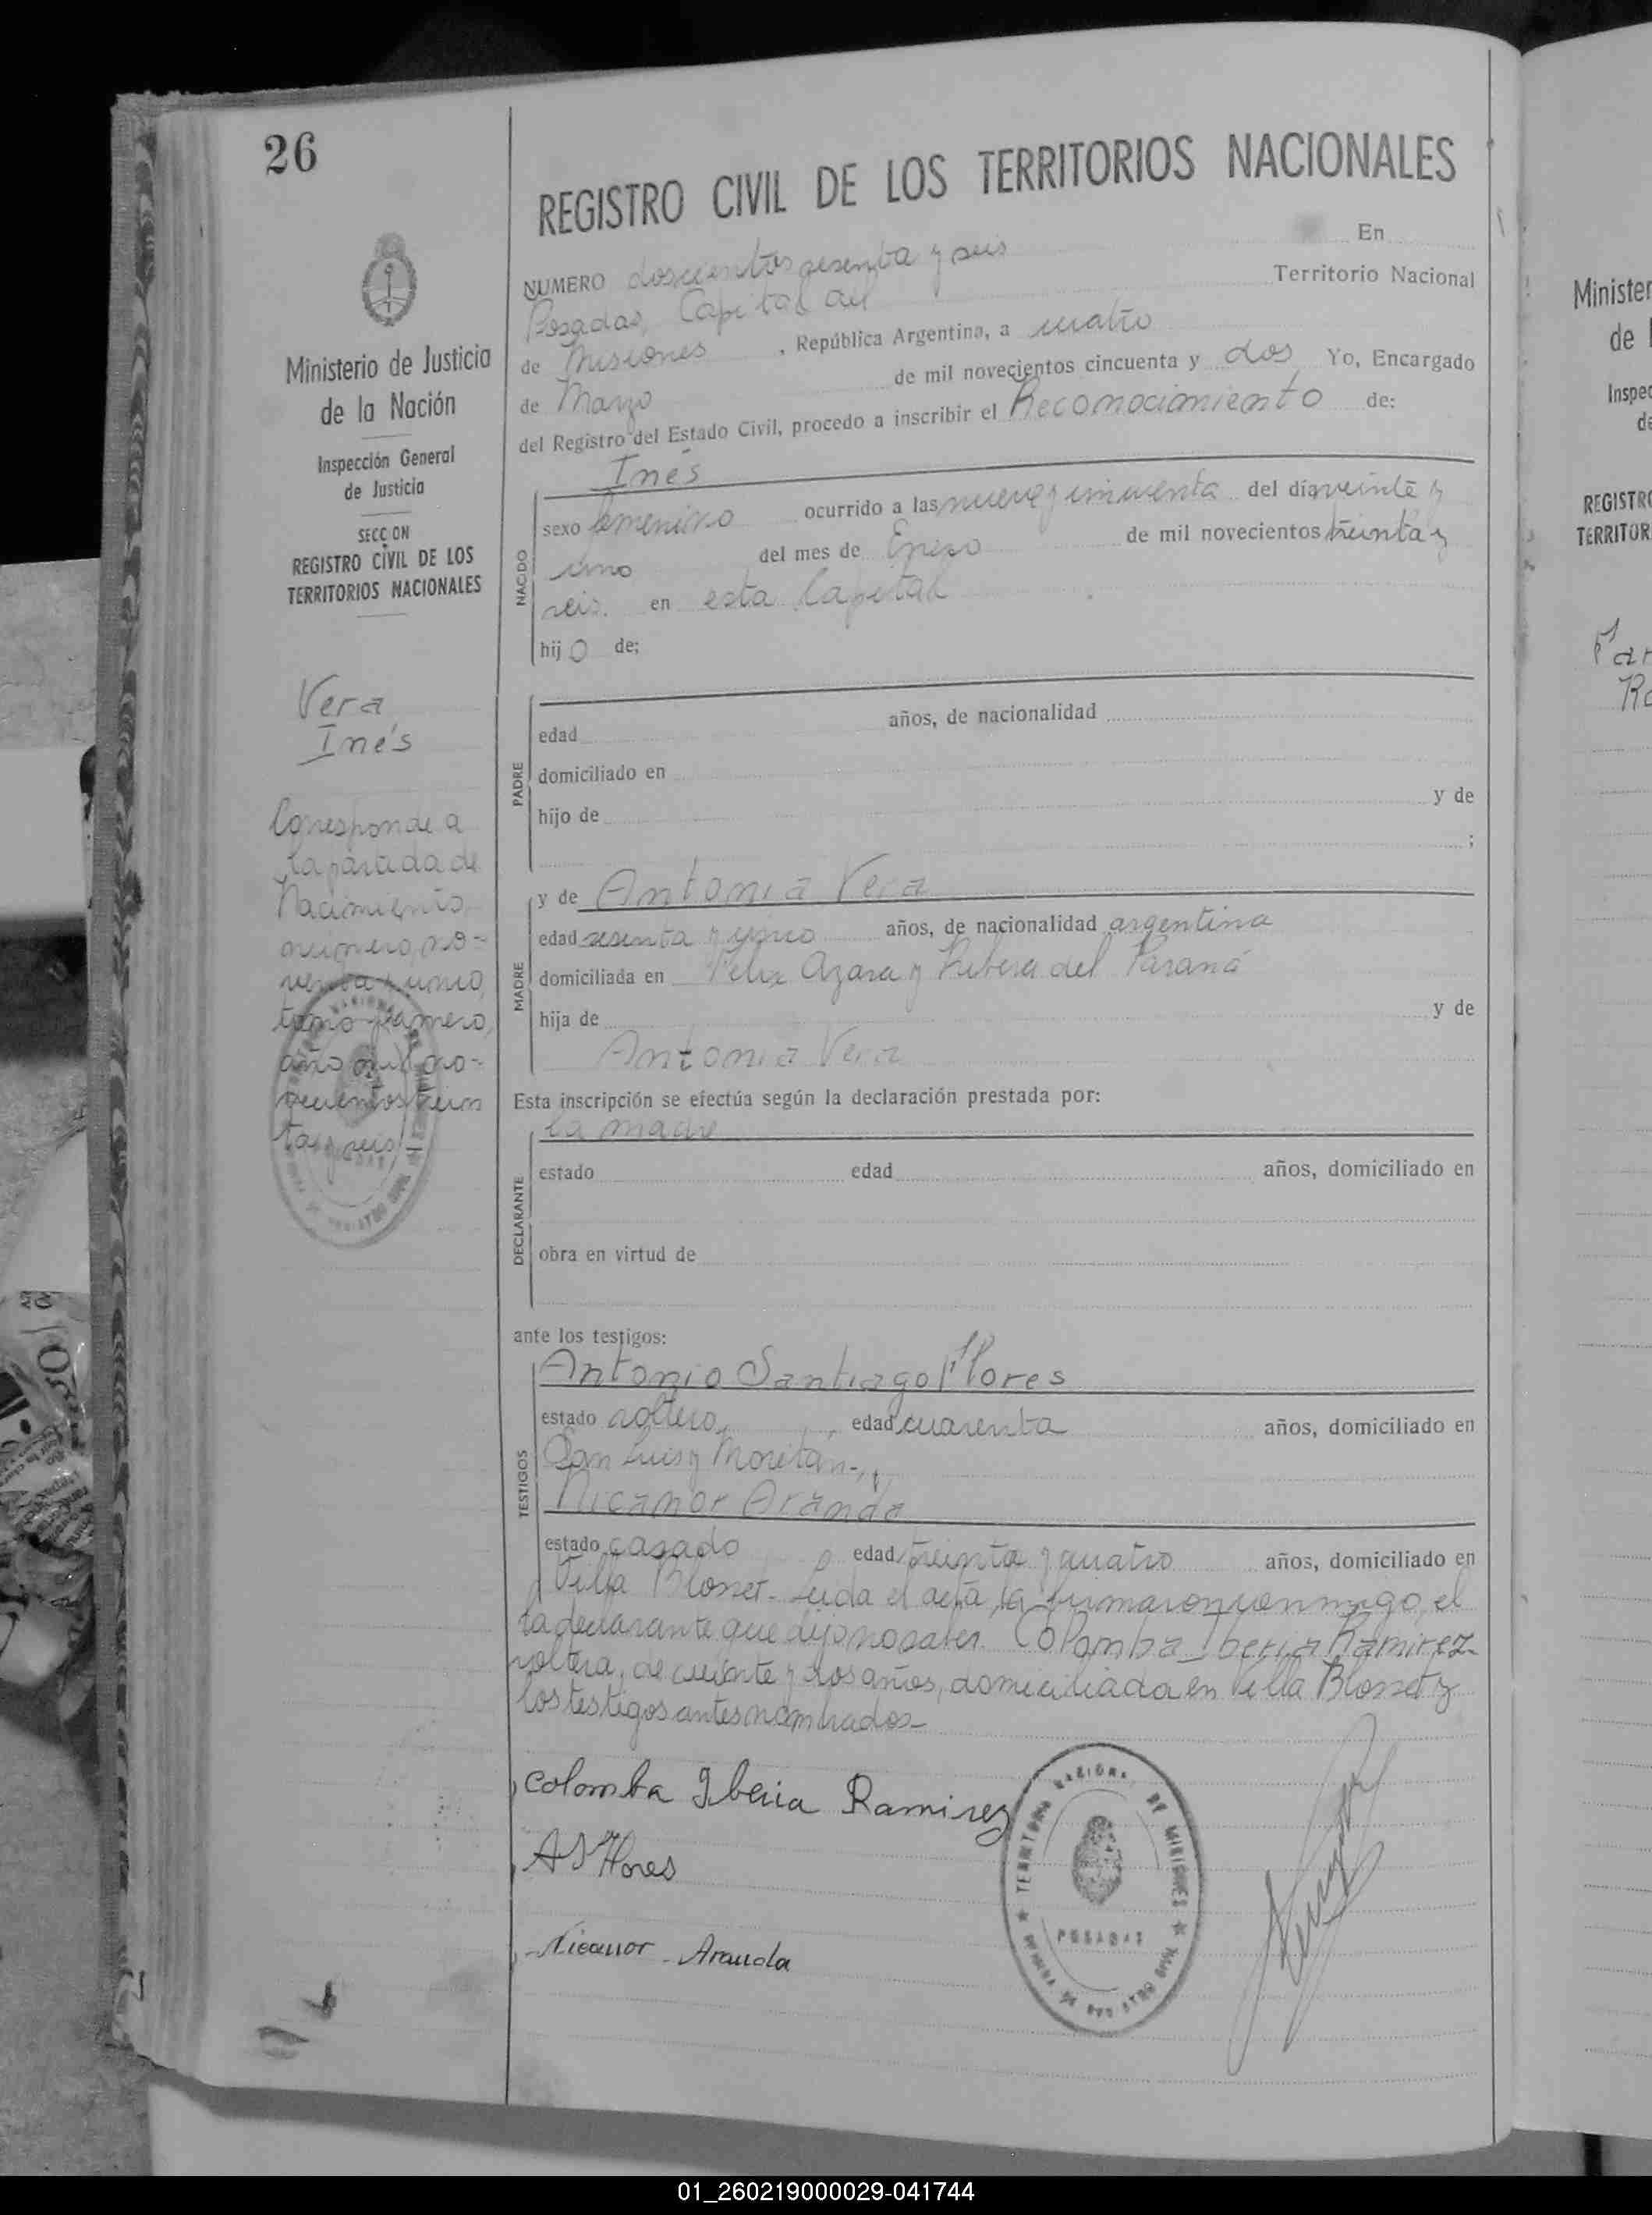 26
REGISTRO CIVIL DE LOS TERRITORIOS NACIONALES
NUMERO doscientos sesenta y seis En
Posadas, Capital del Territorio Nacional
de Misiones , República Argentina, a cuatro
de Marzo de mil novecientos cincuenta y dos Yo, Encargado
del Registro del Estado Civil, procedo a inscribir el Reconocimiento de:
Inés
NACIDO
sexo femenino ocurrido a las nueve y cincuenta del día veinte y
uno del mes de Enero de mil novecientos treinta y
seis. en esta Capital
hijo de:
PADRE
edad años, de nacionalidad
domiciliado en
hijo de y de
;
MADRE
y de Antonia Vera
edad sesenta y años, de nacionalidad argentina
domiciliada en Felix Azara y Ribera del Paraná
hija de y de
Antonia Vera
Esta inscripción se efectúa según la declaración prestada por:
la madre
DECLARANTE
estado edad años, domiciliado en
obra en virtud de
ante los testigos:
TESTIGOS
Antonio Santiago Flores
estado soltero, edad cuarenta años, domiciliado en
San Luis y Moritán-,,
Nicanor Aranda
estado casado edad treinta y cuatro años, domiciliado en
Villa Blosset- Leida el acta, la firmaron conmigo, el
la declarante que dijo no saber. Colomba Iberia Ramirez
soltera, de veinte y dos años, domiciliada en Villa Blosset y
los testigos antes nombrados-
Colomba Iberia Ramirez
A S Flores
Nicanor Aranda
TERRITORIO NACIONAL DE MISIONES
POSADAS
Ministerio de Justicia
de la Nación
Inspección General
de Justicia
SECCION
REGISTRO CIVIL DE LOS
TERRITORIOS NACIONALES
Vera
Inés
Corresponde a
la partida de
Nacimiento
número, no-
venta y uno,
tomo primero,
año mil no-
vecientos trein
ta y seis
Minister
de l
Inspec
de
REGISTRO
TERRITOR
01_260219000029-041744